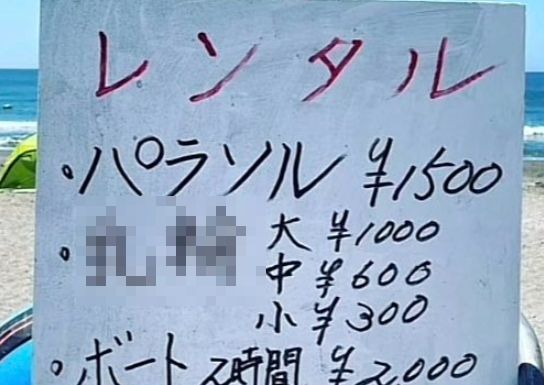 レンタル
・パラソル ¥1500
・ 大 ¥1000
中 ¥600
小 ¥300
・ボート 2時間 ¥2,000